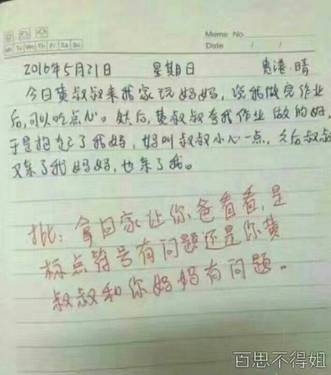 Memo No.
Mo Tu We Th Fr Sa Su
Date / /
2016年5月21日 星期日 晴
今日黄叔叔来我家玩妈妈，说我做完作业
后，可以吃点心。然后，黄叔叔看我作业做的好，
于是抱起了我妈，妈叫叔叔小心一点，之后叔叔
又亲了我妈妈，也亲了我。
批：拿回家让你爸看看，是
标点符号有问题还是你黄
叔叔和你妈妈有问题。
百思不得姐